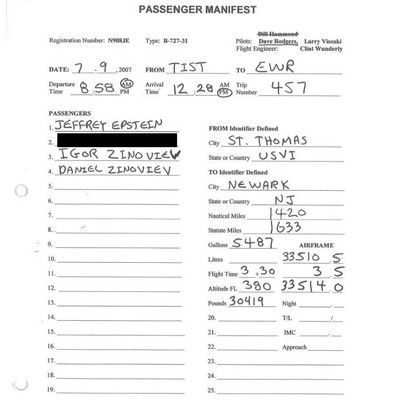 PASSENGER MANIFEST
Bill Hammond
Registration Number: N908JE Type: B-727-31 Pilots: Dave Rodgers, Larry Visoski
Flight Engineer: Clint Wunderly
DATE: 7.9, 2007 FROM TIST TO EWR
Departure Time 8:58 AM PM Arrival Time 12:28 AM PM Trip Number 457
PASSENGERS
1. JEFFREY EPSTEIN
2.
3. IGOR ZINOVIEV
4. DANIEL ZINOVIEV
5.
6.
7.
8.
9.
10.
11.
12.
13.
14.
15.
16.
17.
18.
19.
FROM Identifier Defined
City ST. THOMAS
State or Country USVI
TO Identifier Defined
City NEWARK
State or Country NJ
Nautical Miles 1420
Statute Miles 1633
Gallons 5487 AIRFRAME
Litres 33510.5
Flight Time 3.30 3.5
Altitude FL 380 33514.0
Pounds 30419 Night
20. T/L /
21. IMC
22. Approach
23.
24.
25.